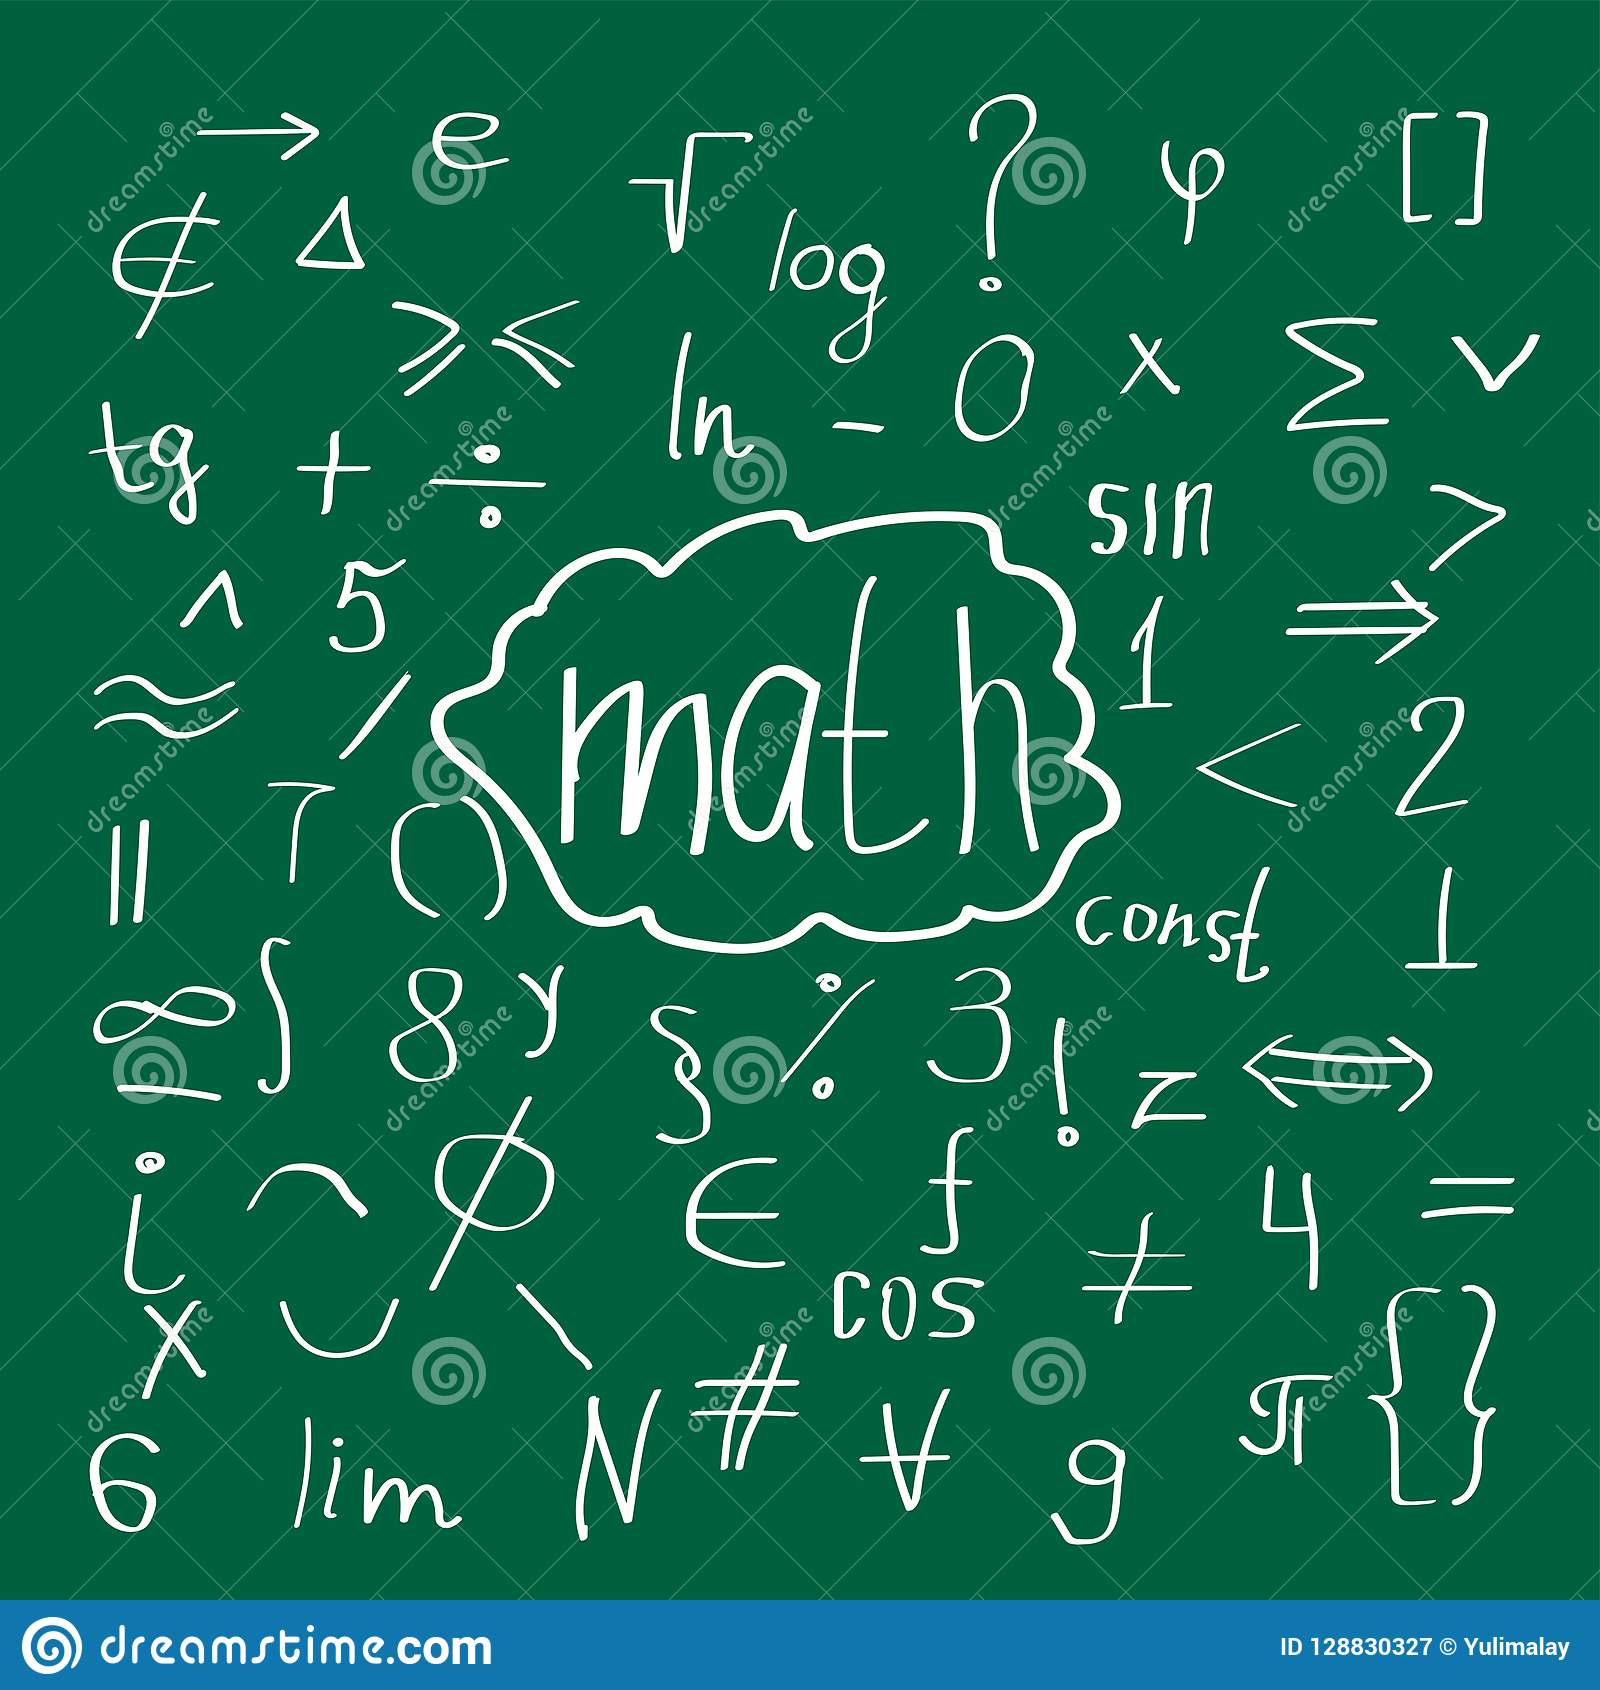 → e √ ? φ []
∉ Δ log
⩾ ⩽ ln - 0 x Σ ∨
tg + ÷ sin >
∧ 5 math 1 ⇒
≈ / < 2
|| T () const ⊥
∞ ∫ 8 y § % 3 ! z ⇔
—
i ⌒ ∅ ∈ f ≠ 4 =
x ⌣ \ cos π {}
6 lim N # ∀ 9
dreamstime.com ID 128830327 © Yulimalay